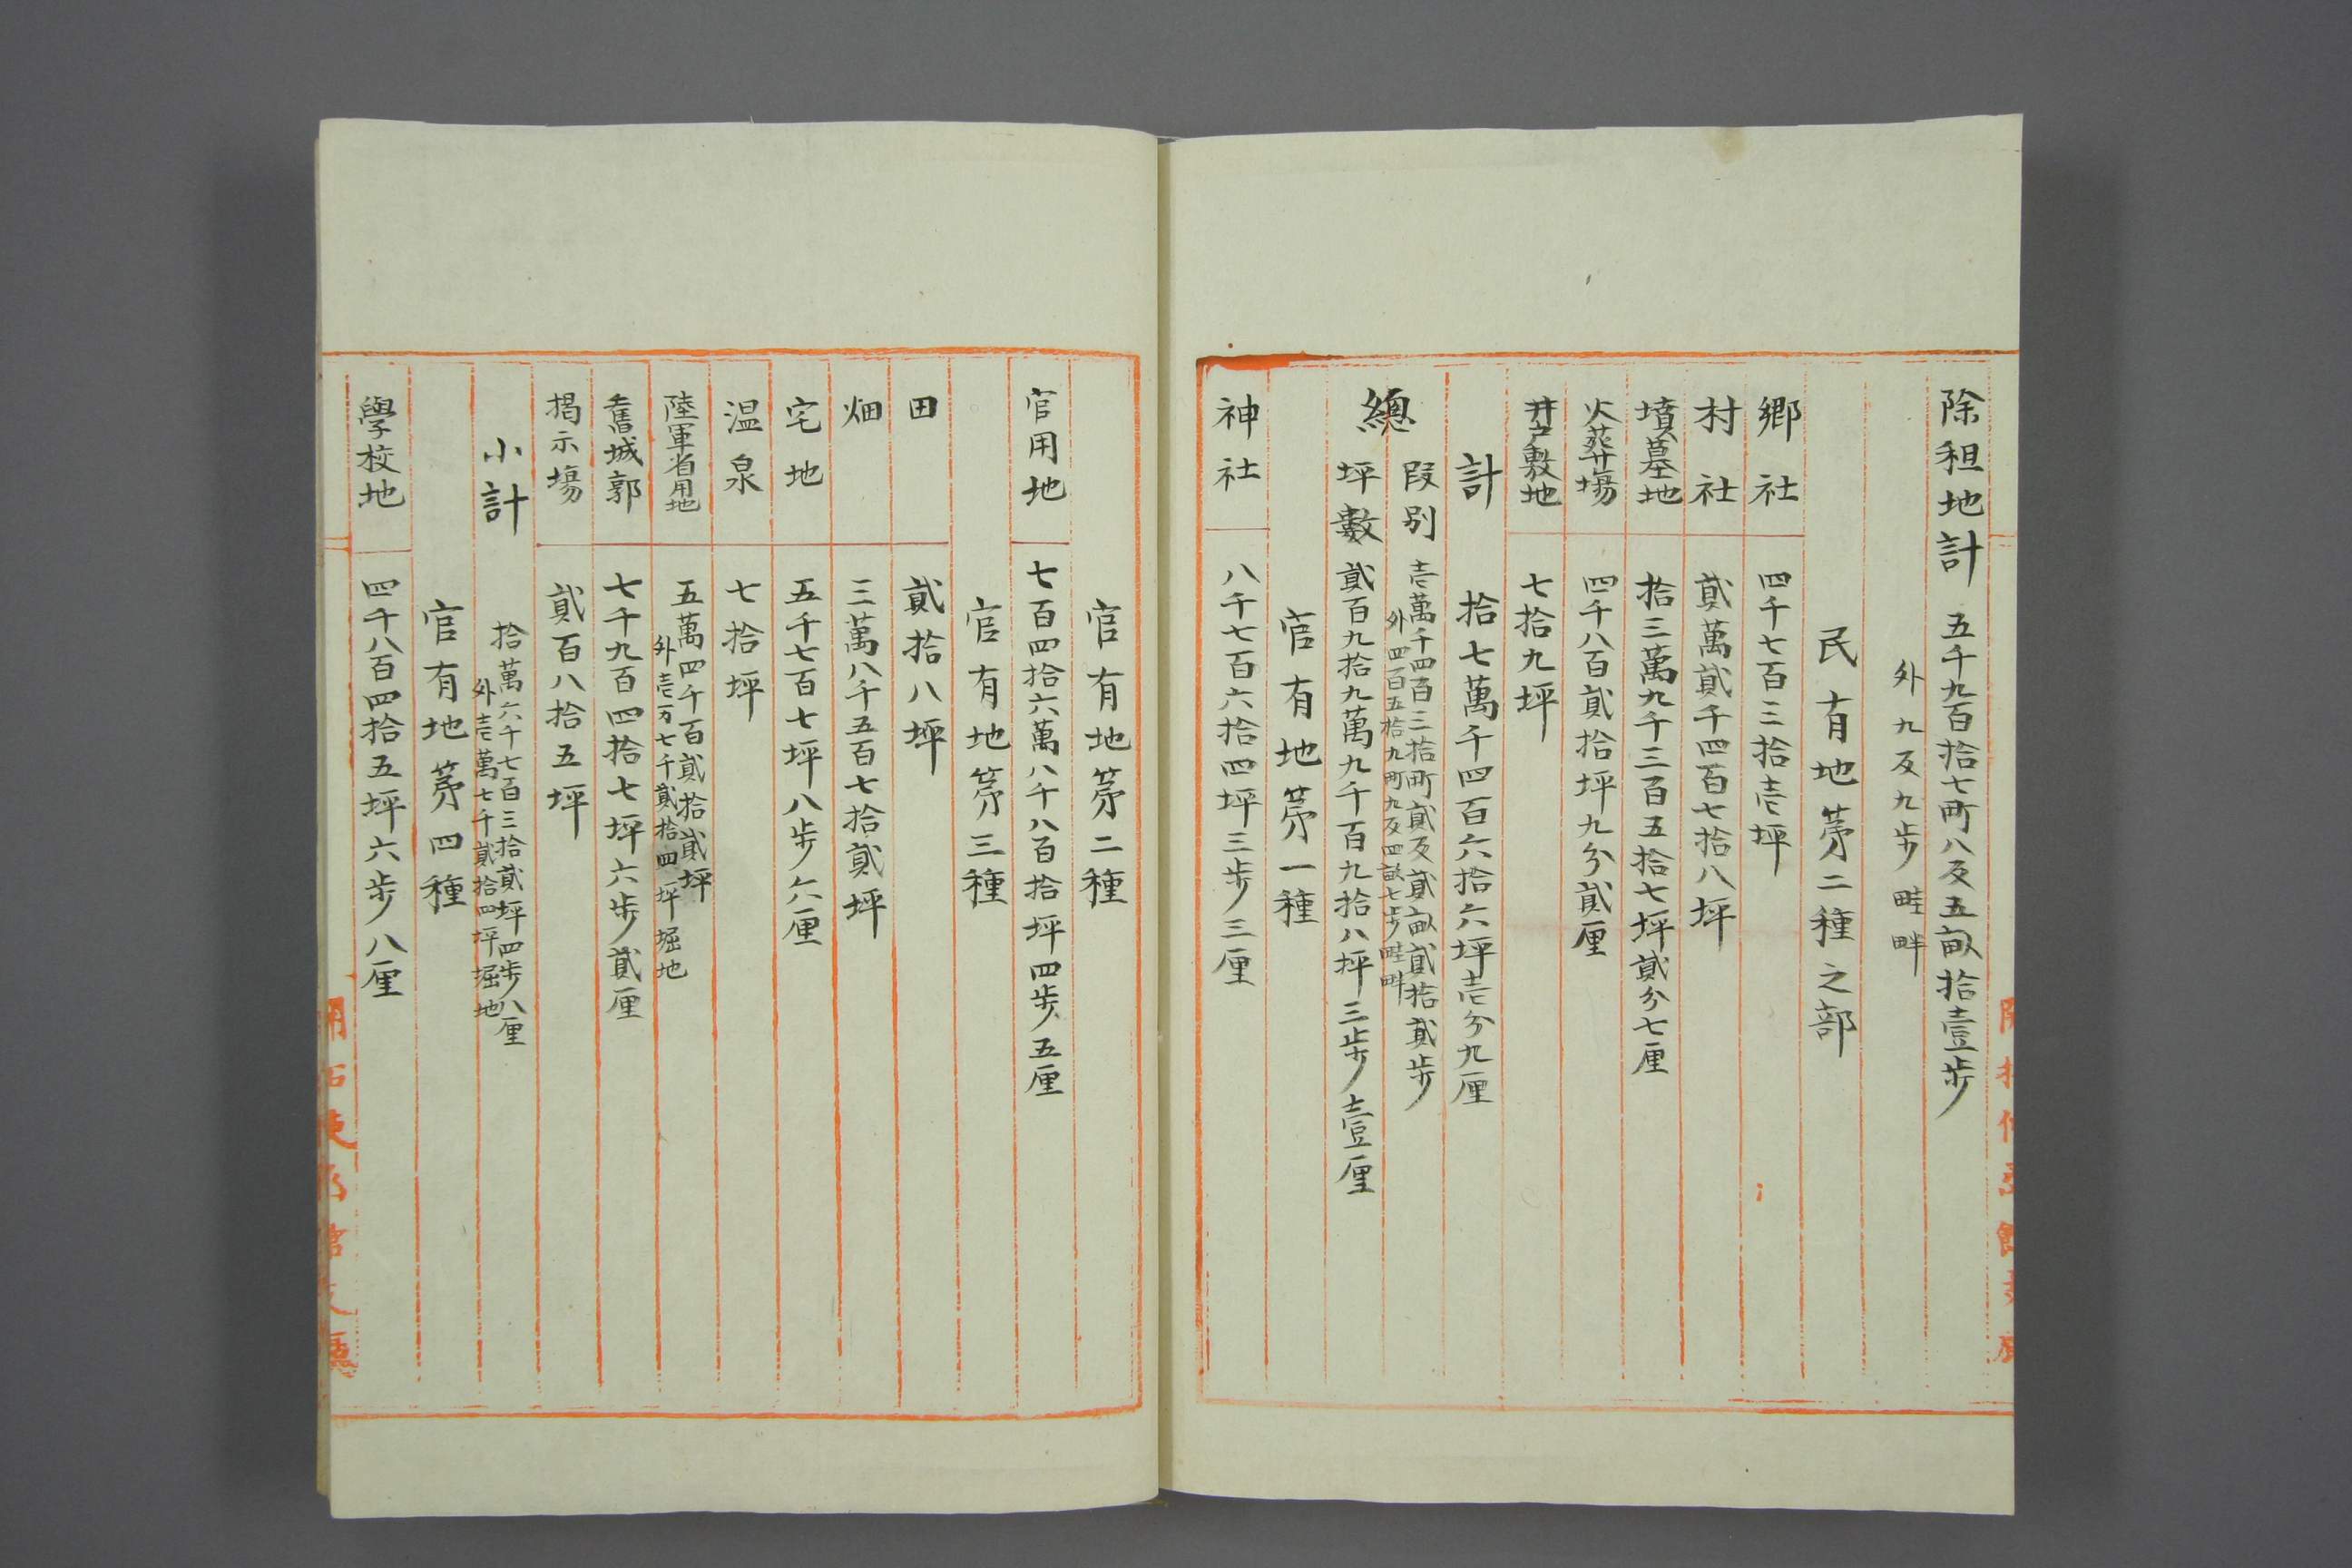 除租地計 五千九百拾七町八反五畝拾壹歩
外九反九歩畦畔
民有地第二種之部
郷社 四千七百三拾壱坪
村社 貳萬貳千四百七拾八坪
墳墓地 拾三萬九千三百五拾七坪貳分七厘
火葬場 四千八百貳拾坪九分貳厘
井戸敷地 七拾九坪
計 拾七萬千四百六拾六坪壱分九厘
總
段別 壱萬千四百三拾町貳反貳畝貳拾貳歩
外四百五拾九町九反四畝七歩畦畔
坪數 貳百九拾九萬九千百九拾八坪三歩壹厘
官有地第一種
神社 八千七百六拾四坪三歩三厘
官有地第二種
官用地 七百四拾六萬八千八百拾坪四歩五厘
官有地第三種
田 貳拾八坪
畑 三萬八千五百七拾貳坪
宅地 五千七百七坪八歩六厘
温泉 七拾坪
陸軍省用地 五萬四千百貳拾貳坪
外壱万七千貳拾四坪堀地
舊城郭 七千九百四拾七坪六歩貳厘
掲示場 貳百八拾五坪
小計 拾萬六千七百三拾貳坪四歩八厘
外壱萬七千貳拾四坪堀地
官有地第四種
學校地 四千八百四拾五坪六歩八厘